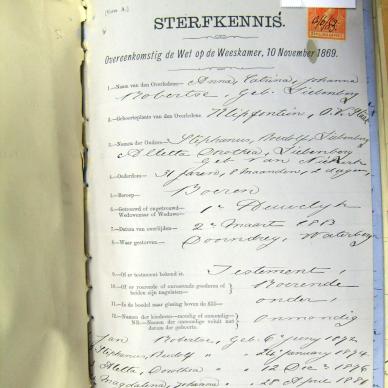 (Form A.)
STERFKENNIS.
Overeenkomstig de Wet op de Weeskamer, 10 November 1869.
1.—Naam van den Overledene— Anna Catrina, Johanna
Robertse, Geb: Liebenberg
2.—Geboorteplaats van den Overledene
3.—Namen der Ouders— Stephanus, Rudolf Liebenberg
Aletta Dorothea, Liebenberg
Geb Van
4.—Ouderdom— 31 Jaren, 8 maanden, 2 dagen
5.—Beroep— Boeren
6.—Getrouwd of ongetrouwd—
Weduwenaar of Weduwe— 1e Huwelyk
7.—Datum van overlijden— 2e Maart
8.—Waar gestorven— Waterberg
9.—Of er testament bekend is. Testement
10.—Of er roerende of onroerende goederen of beiden zijn nagelaten— Roerende
11.—Is de boedel naar gissing boven de £ onder
12.—Namen der kinderen—mondig of onmondig— Onmondig
met datum der geboorte.
Jan Robertse, Geb: 6e Juny 1892
Stephanus, Rudolf " " 24 January 1894
Aletta, Dorothea " " 12 Dec 1896
Magdalena, Johanna " " 28 April